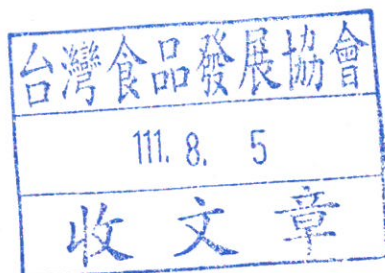 台灣食品發展協會
111. 8. 5
收文章